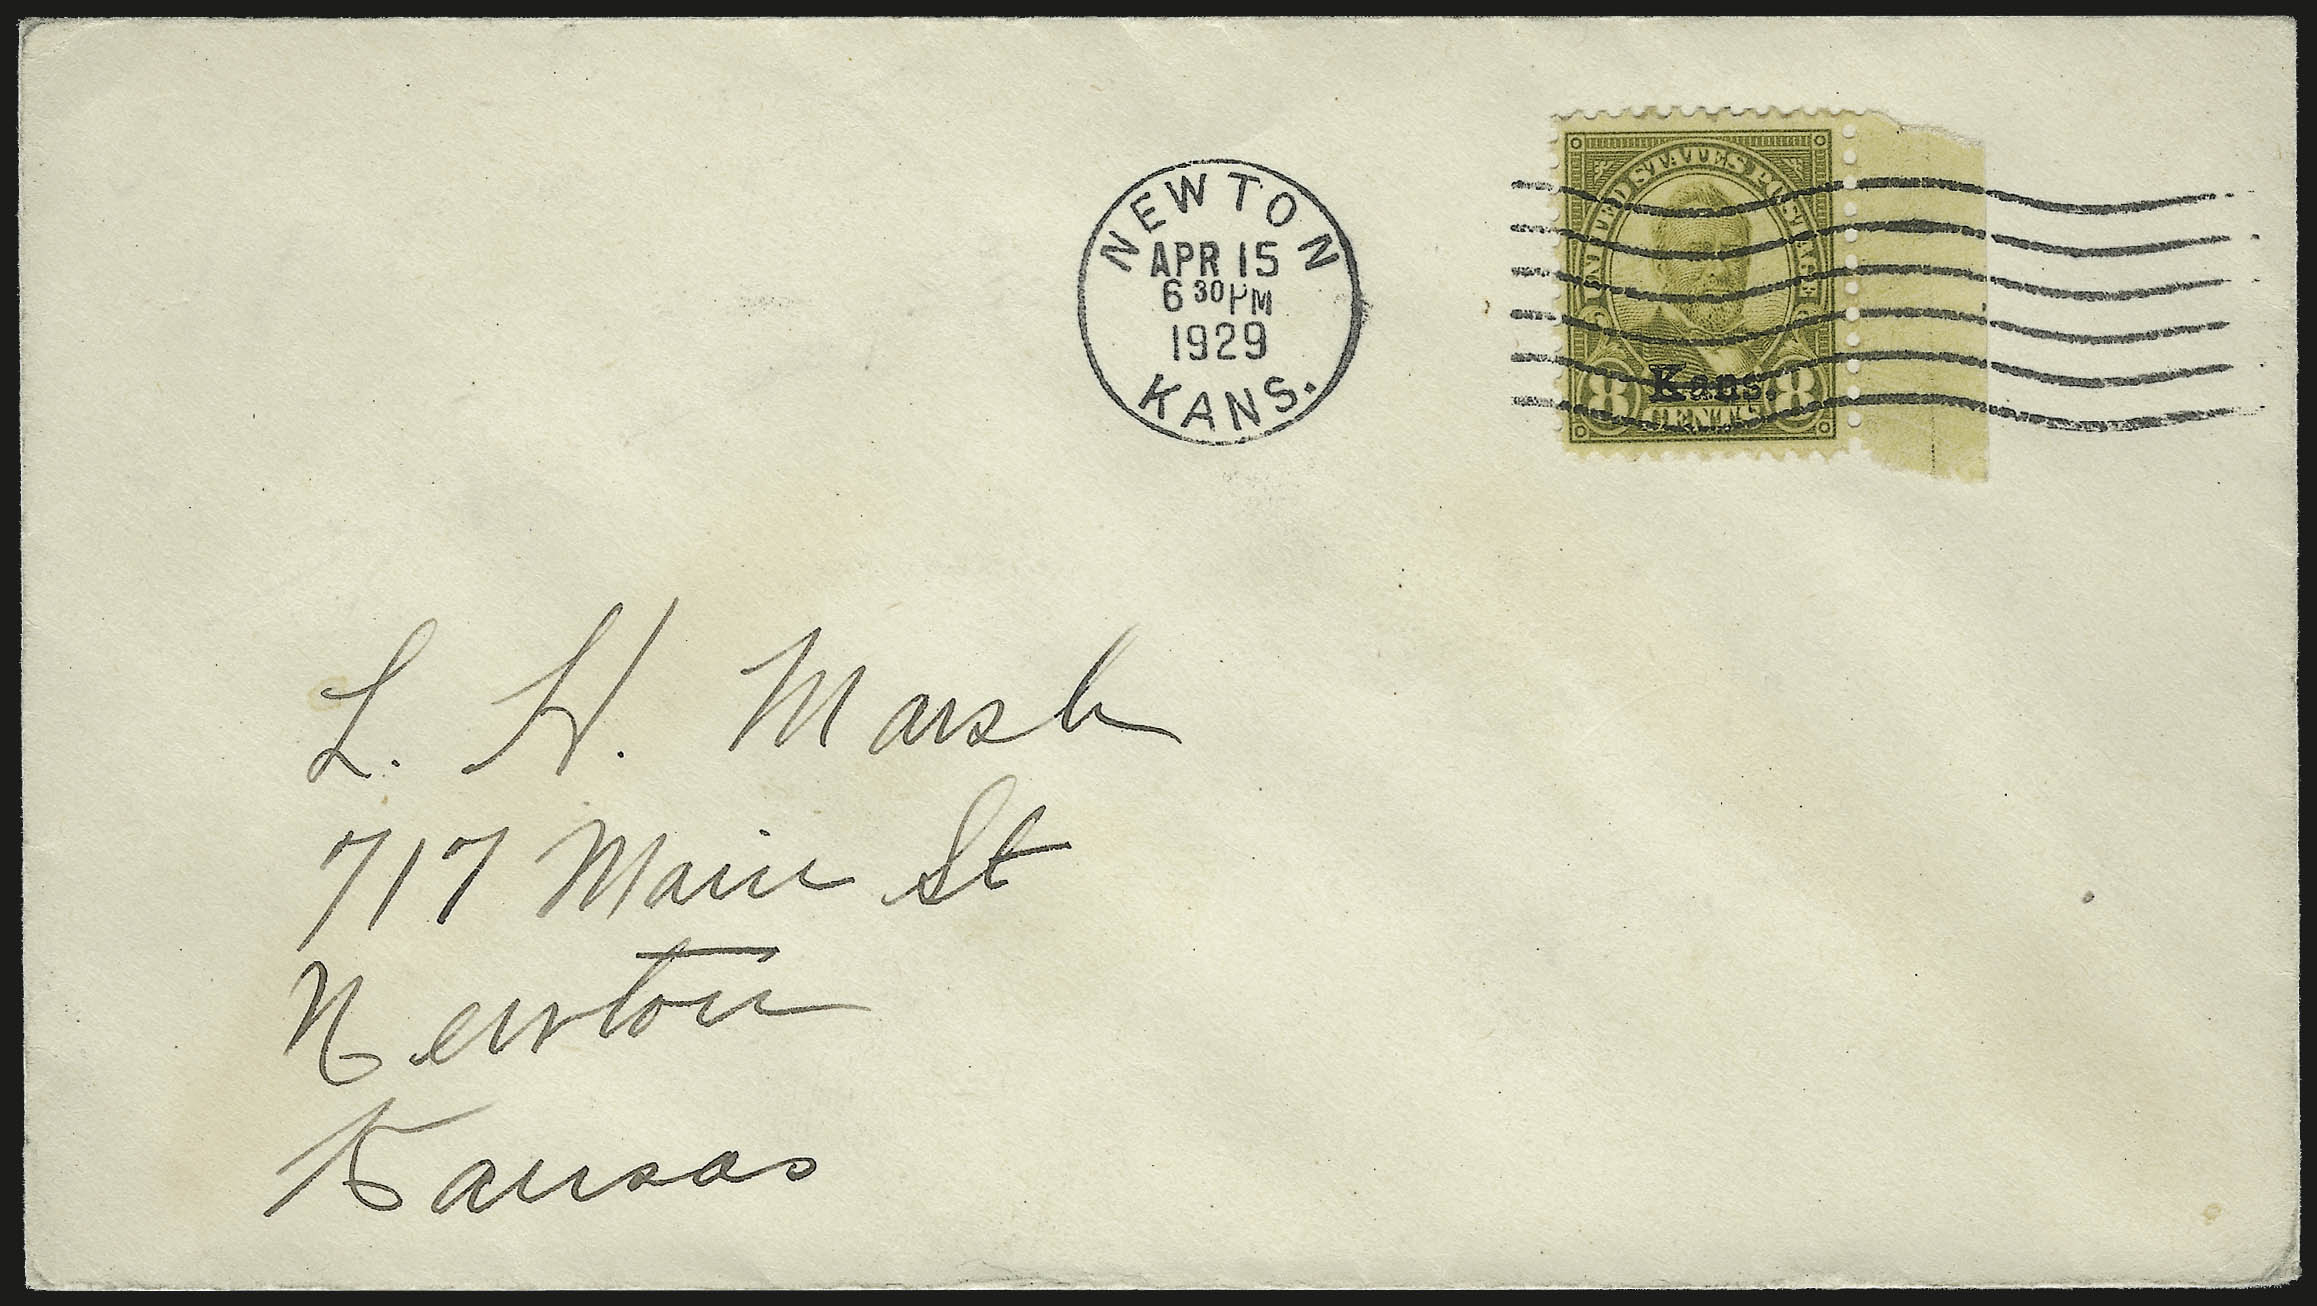 NEWTON
APR 15
6 30 PM
1929
KANS.
UNITED STATES POSTAGE
Kans.
8 CENTS 8
L. H. Marsh
717 Main St
Newton
Kansas